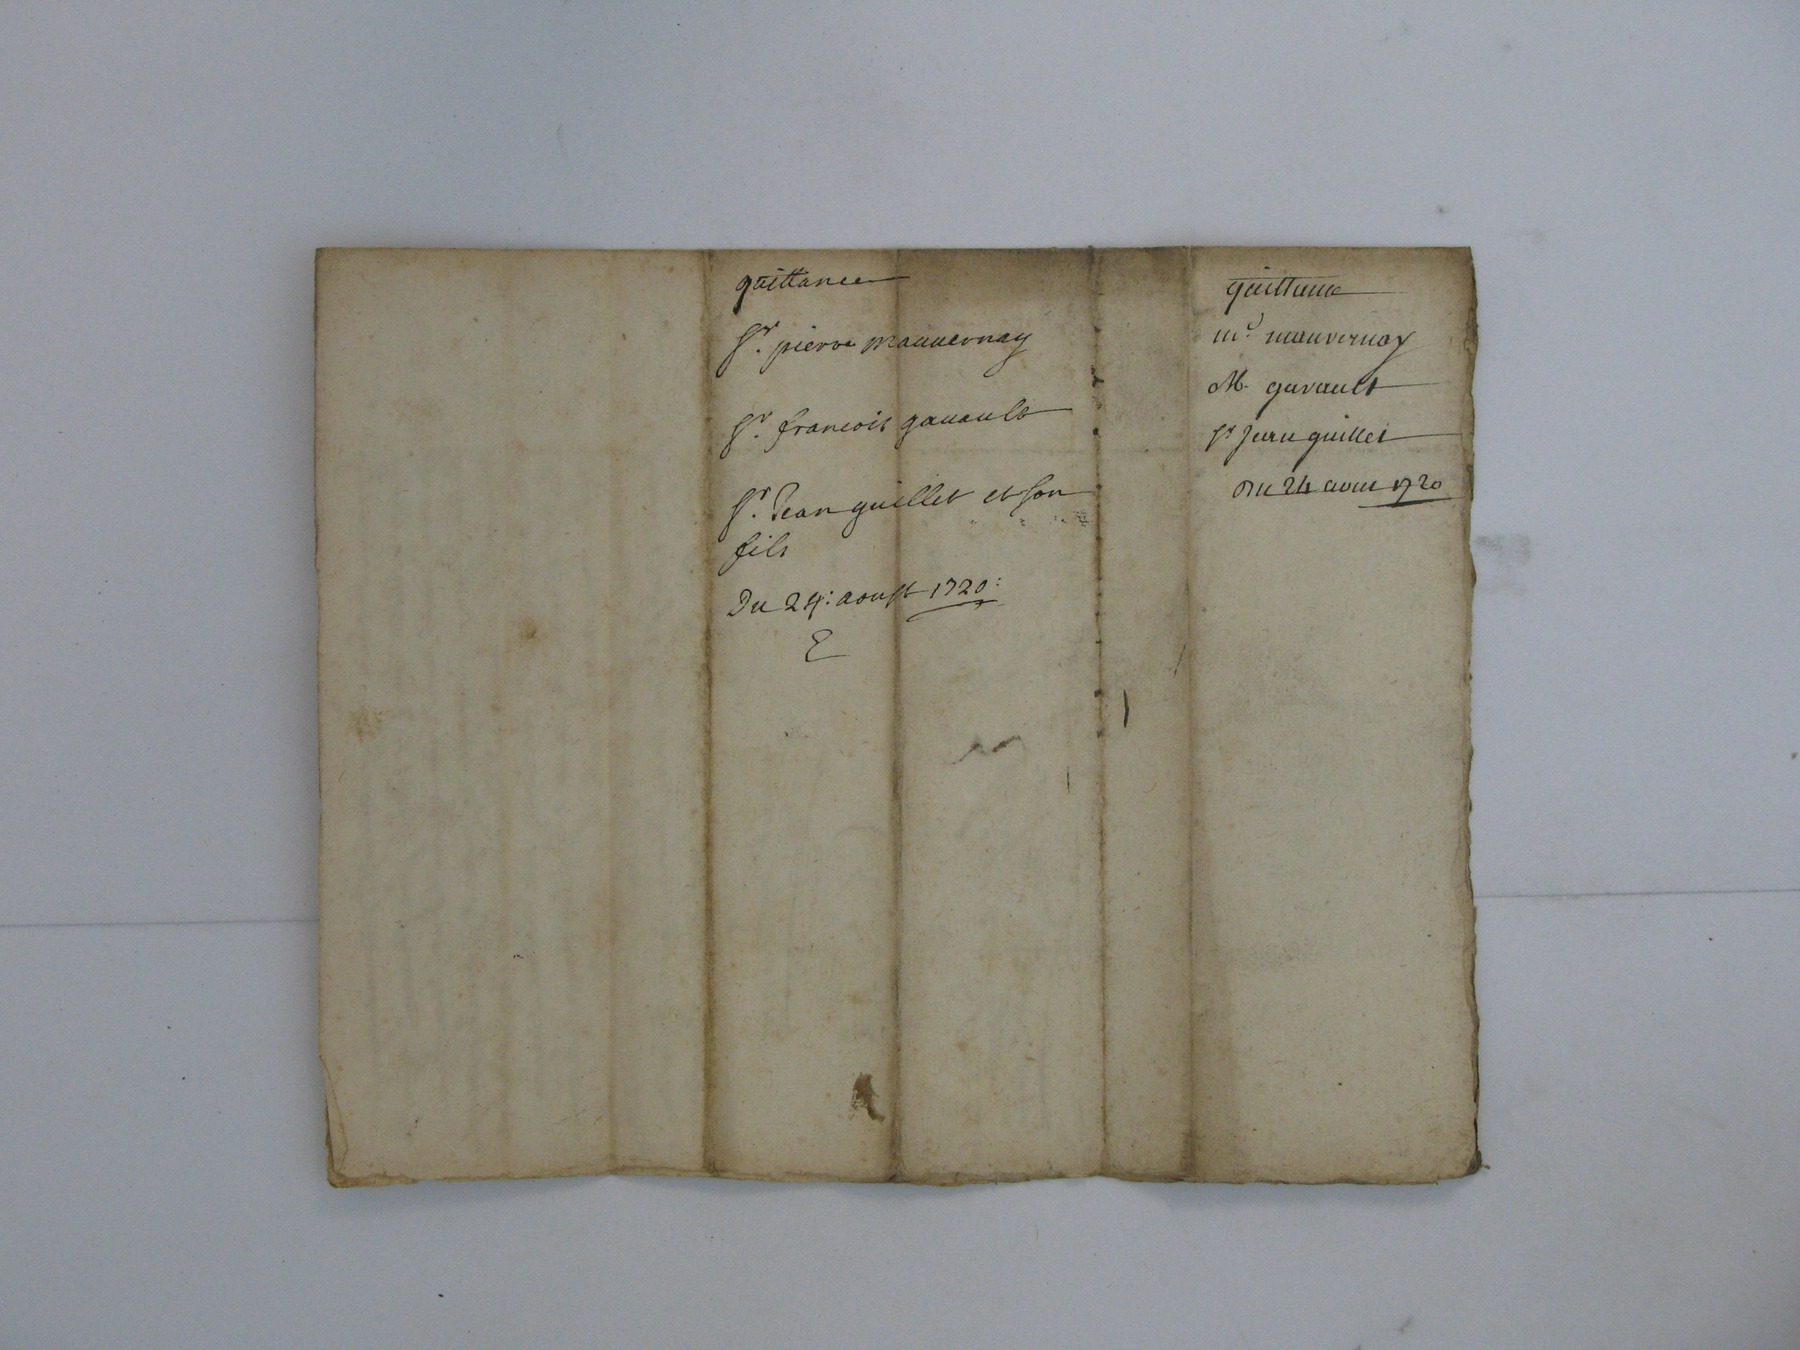 quittance
Sr. pierre mauuernay
Sr. francois gauault
Sr. Jean guillet et son
fils
Du 24: aoust 1720:
quittance
mr mauvernay
M. gavault
Sr Jean guillet
Du 24 aout 1720